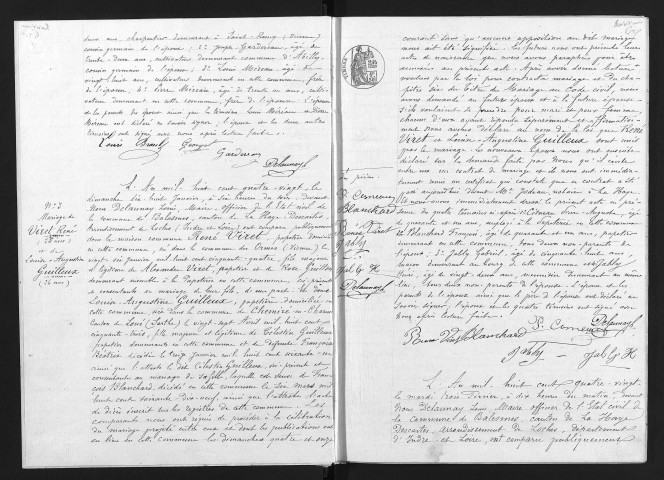 deux ans, charpentier demeurant à Saint-Remy (Vienne)
cousin germain de l'époux; 2° Joseph Gardereau, âgé de
trente deux ans, cultivateur demeurant commune d'Abilly
cousin germain de l'époux; 3° Louis Méreau, âgé de
vingt huit ans, cultivateur demeurant en cette commune, frère
de l'épouse; 4° Pierre Méreau, âgé de trente un ans, culti-
vateur demeurant en cette commune, frère de l'épouse. L'épouse
ont déclaré ne savoir signer, l'époux et les deux autres
témoins ont signé avec nous après lecture faite.
Louis Georget
Delaunay
N° 3
Mariage de
Viret René
et
Louise-Augustine
Guilleux
(26 ans)
L'An mil huit cent quatre-vingt le
dimanche dix huit Janvier, à six heures du soir, devant
Nous Delaunay Louis, Maire, officier de l'état civil de
la commune de Balesmes, canton de La Haye-Descartes
Arrondissement de Loches (Indre et Loire) ont comparu publiquement
dans la maison commune René Viret, papetier demeurant
en cette commune, né dans la commune des Ormes (Vienne) le
vingt six janvier mil huit cent cinquante-quatre, fils majeur
et légitime de Alexandre Viret, papetier et de Rose Guillon
demeurant ensemble à la Papeterie en cette commune, ici présents
et consentants au mariage de leur fils, d'une part. Et Delle
Louise-Augustine Guilleux, papetière domiciliée en
cette commune, née dans la commune de Chemiré en Charnie
Canton de Loué (Sarthe) le vingt-sept Avril mil huit cent
cinquante-trois, fille majeure et légitime de Célestin Guilleux
papetier demeurant en cette commune et de défunte Françoise
décédée le vingt Janvier mil huit cent soixante-un
ainsi que l'atteste le dit Célestin Guilleux, ici présent et
consentant au mariage de sa fille, laquelle est veuve de Fran-
çois Blanchard, décédé en cette commune le six Mars mil
huit cent soixante dix-neuf, ainsi que l'atteste l'acte
de décès inscrit sur les registres de cette commune. Les
comparants nous ont requis de procéder à la célébration
du mariage projeté entre eux et dont les publications ont
eu lieu en cette commune les dimanches quatre et onze
courant sans qu'aucune opposition au dit mariage
nous ait été signifiée. Les futurs nous ont présenté leurs
actes de naissance que nous avons paraphés pour être
annexés au présent acte. Après avoir donné lecture
voulues par la loi pour contracter mariage et du cha-
pitre six du titre du Mariage au Code civil, nous
avons demandé au futur époux et à la future épouse
s'ils veulent se prendre pour mari et pour femme
chacun d'eux ayant répondu séparément et affirmative-
ment Nous avons déclaré au nom de la loi que René
Viret et Louise-Augustine Guilleux sont unis
par le mariage. Les nouveaux époux nous ont ensuite
déclaré sur la demande faite par Nous qu'il existe
entre eux un contrat de mariage et ils nous ont immédiate-
ment remis un certificat qui constate que ce contrat a été
reçu aujourd'hui devant Me notaire à La Haye
Et nous avons immédiatement dressé le présent acte en pré-
sence de quatre témoins ci-après
de quarante et un ans, employé à la papeterie en cette commune
2° Blanchard François, âgé de quarante et un ans, papetier
demeurant en cette commune, tous deux non-parents de
l'épouse; 3° Jably Gabriel, âgé de cinquante huit ans
demeurant en cette commune et 4° Jably
âgé de vingt deux ans, menuisier demeurant au même
lieu. Tous deux non parents de l'épouse. L'époux et les
parents de l'époux ainsi que le père de l'épouse ont déclaré ne
savoir signer, l'épouse et les quatre témoins ont signé avec
Nous après lecture faite.
Blanchard
Viret
Jably
Jably
Delaunay
Blanchard
Delaunay
Jably
L'An mil huit cent quatre-vingt
le mardi trois Février, à dix heures du matin, devant
Nous Delaunay Louis Maire officier de l'Etat civil de
la commune de Balesmes, canton de La Haye
Descartes, arrondissement de Loches, département
d'Indre et Loire, ont comparu publiquement